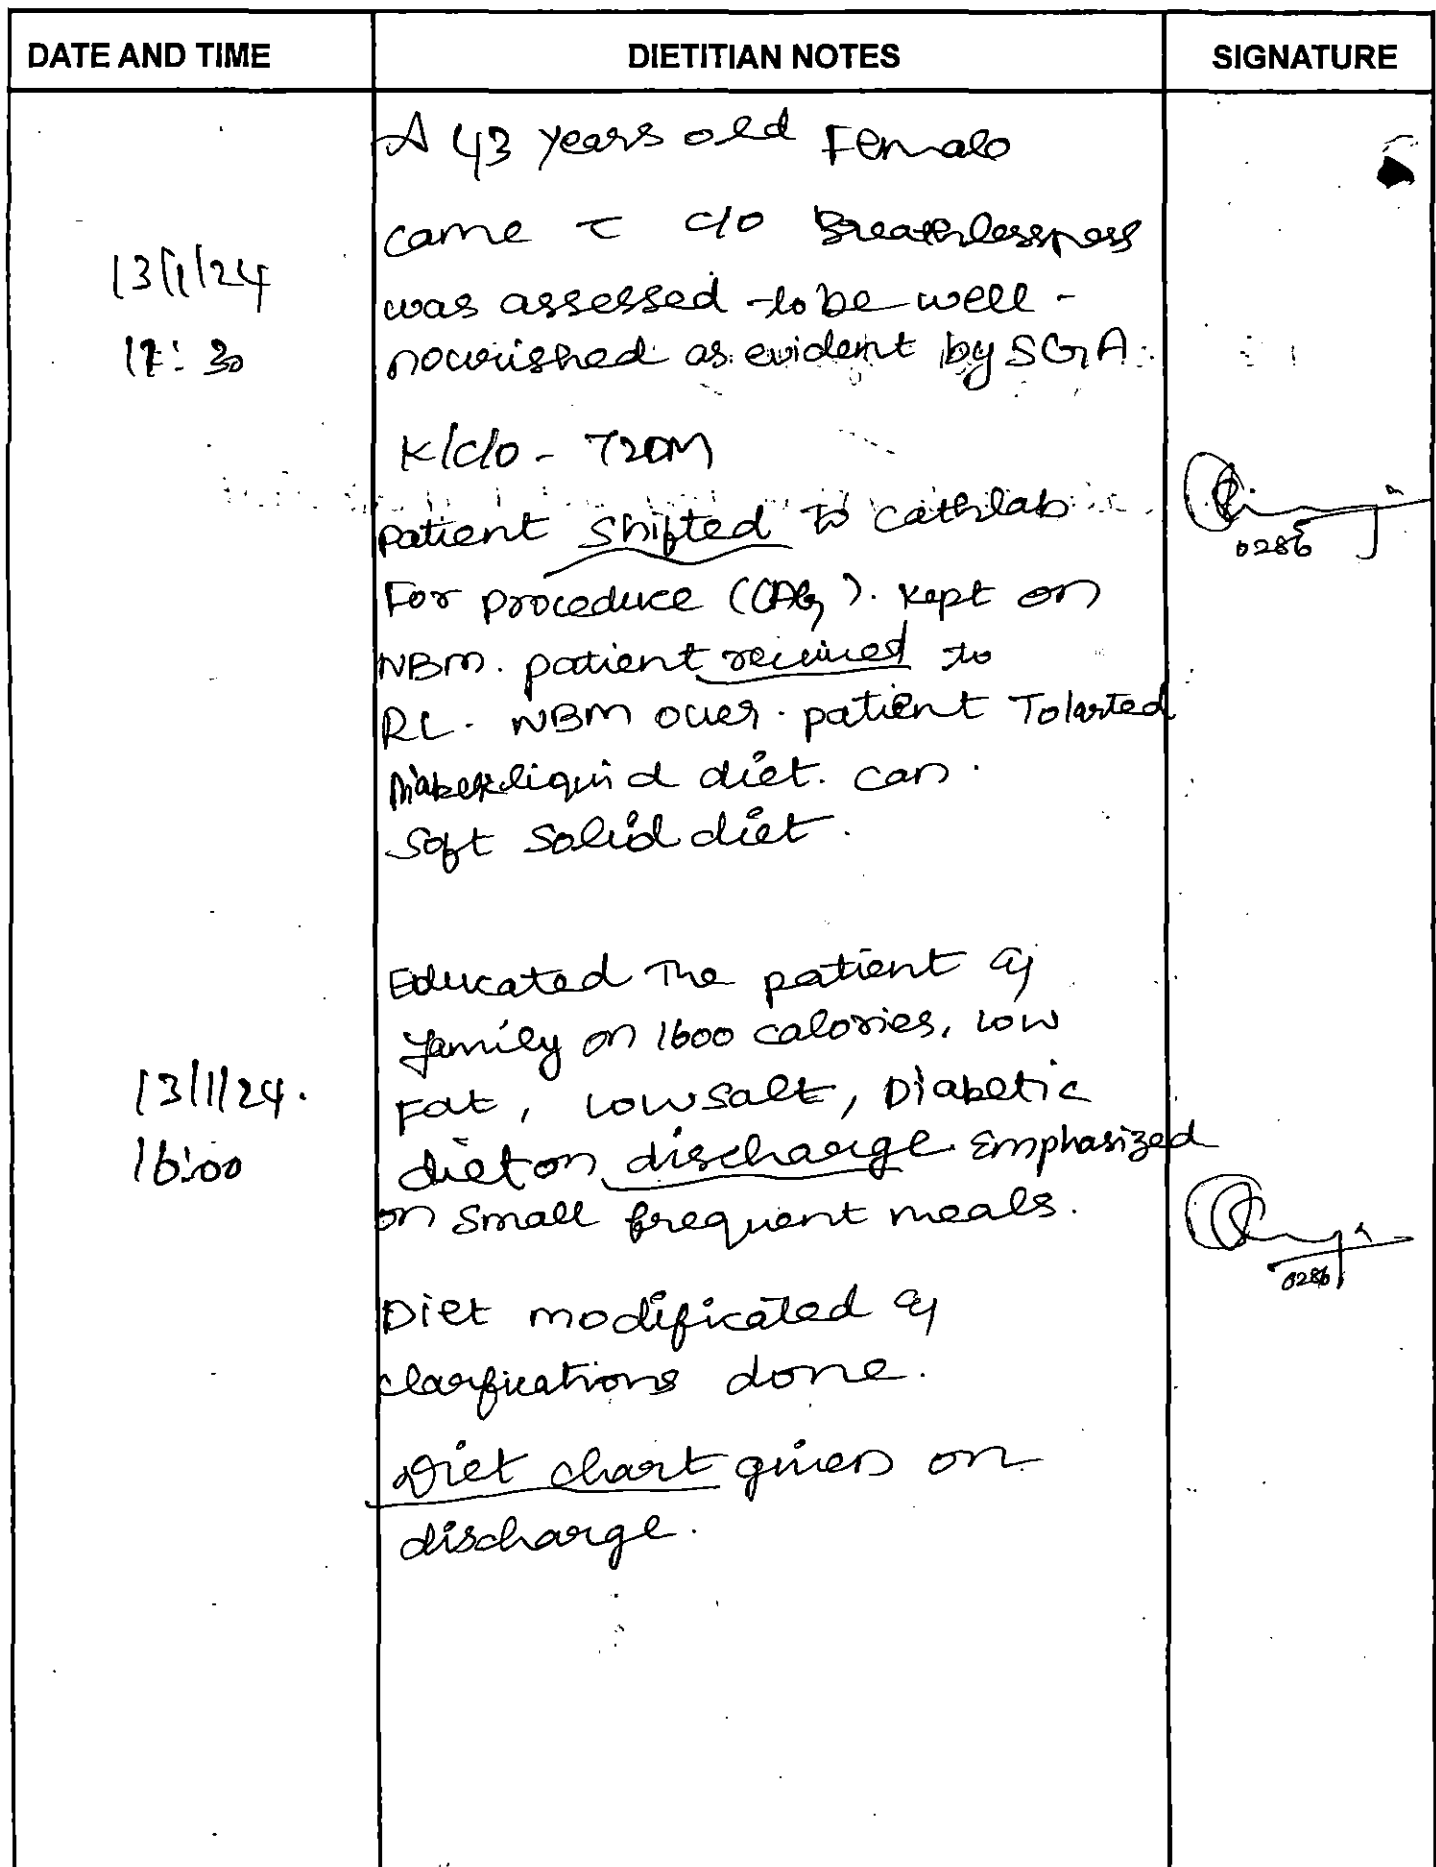 DATE AND TIME DIETITIAN NOTES SIGNATURE
A 43 years old Female
came c̄ c/o Breathlessness
13/1/24
was assessed to be well-
nourished as evident by SGA.
K/c/o - T2DM
patient shifted to cathlab
0286
For procedure (CAG). kept on
NBM. patient recieved to
RL. NBM over. patient Tolarted
liquid diet. can
soft solid diet.
Educated The patient &
family on 1600 calories, low
13/1/24.
Fat, low salt, Diabetic
16:00
diet on discharge. Emphasized
on small frequent meals.
0286
Diet modificated &
clarfications done.
Diet chart given on
discharge.